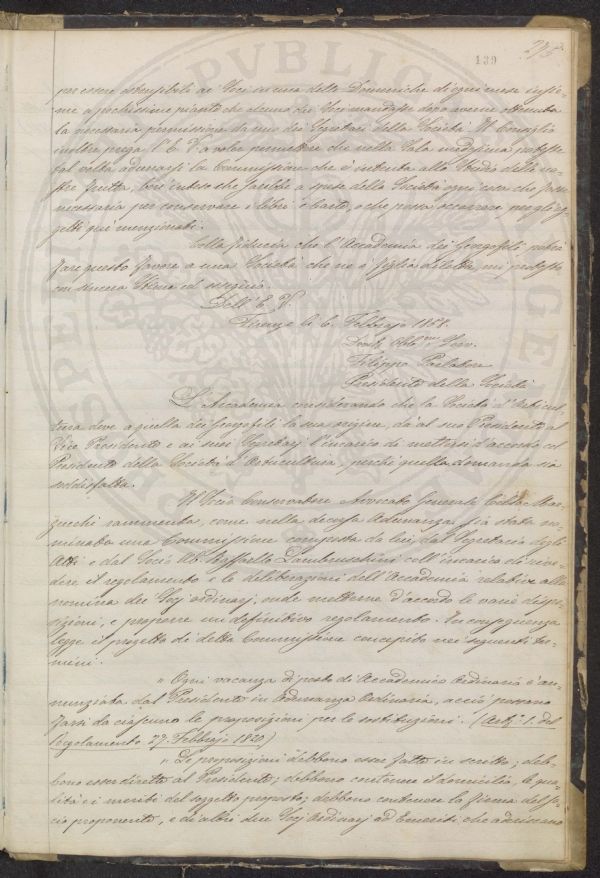 139
per essere ostensibili ai Socj in una delle Domeniche di ogni mese insie-
me a pochissime piante che alcuno dei Socj mandasse dopo averne ottenuta
la necessaria permissione da uno dei Segretari della Società. Il Consiglio
inoltre prega l'E. V. a voler permettere che nella Sala medesima potesse
tal volta adunarsi la Commissione che è intenta allo Studio delle no-
stre frutta, ben inteso che sarebbe a spese della Società ogni cosa che fosse
necessaria per conservare i libri e carte, o che possa occorrere per gli og-
getti qui menzionati.
Colla fiducia che l'Accademia dei Georgofili vorrà
fare questo favore a una Società che ne è figlia diletta, mi protesto
con sincera stima ed ossequio.
Dell'E. V.
Firenze li 6. Febbrajo 1858.
Devot. Obbl.mo Serv.
Filippo Parlatore
Presidente della Società
L'Accademia considerando che la Società d'Orticul-
tura deve a quella dei Georgofili la sua origine, dà al suo Presidente, al
Vice Presidente e ai suoi Segretarj l'incarico di mettersi d'accordo col
Presidente della Società d'Orticultura, perchè quella domanda sia
soddisfatta.
Il Socio Conservatore Avvocato Generale Celso Mar-
zucchi rammenta, come nella decorsa Adunanza fu stata no-
minata una Commissione composta da lui, dal Segretario degli
Atti e dal Socio Ab. Raffaello Lambruschini coll'incarico di rive-
dere il regolamento e le deliberazioni dell'Accademia relative alla
nomina dei Socj ordinarj, onde metterne d'accordo le varie dispo-
sizioni, e proporre un definitivo regolamento. In conseguenza
legge il progetto di detta Commissione concepito nei seguenti ter-
mini.
" Ogni vacanza di posto di Accademico Ordinario è an-
nunziata dal Presidente in Adunanza Ordinaria, acciò possano
farsi da ciascuno le proposizioni per le sostituzioni. (Art. 1. del
Regolamento 27. Febbrajo 1820)
" Le proposizioni debbono esser fatte in scritto; deb-
bono esser dirette al Presidente; debbono contenere il domicilio, le qua-
lità e i meriti del soggetto proposto; debbono contenere la firma del So-
cio proponente, e di altri due Socj Ordinarj od Emeriti che aderiscano